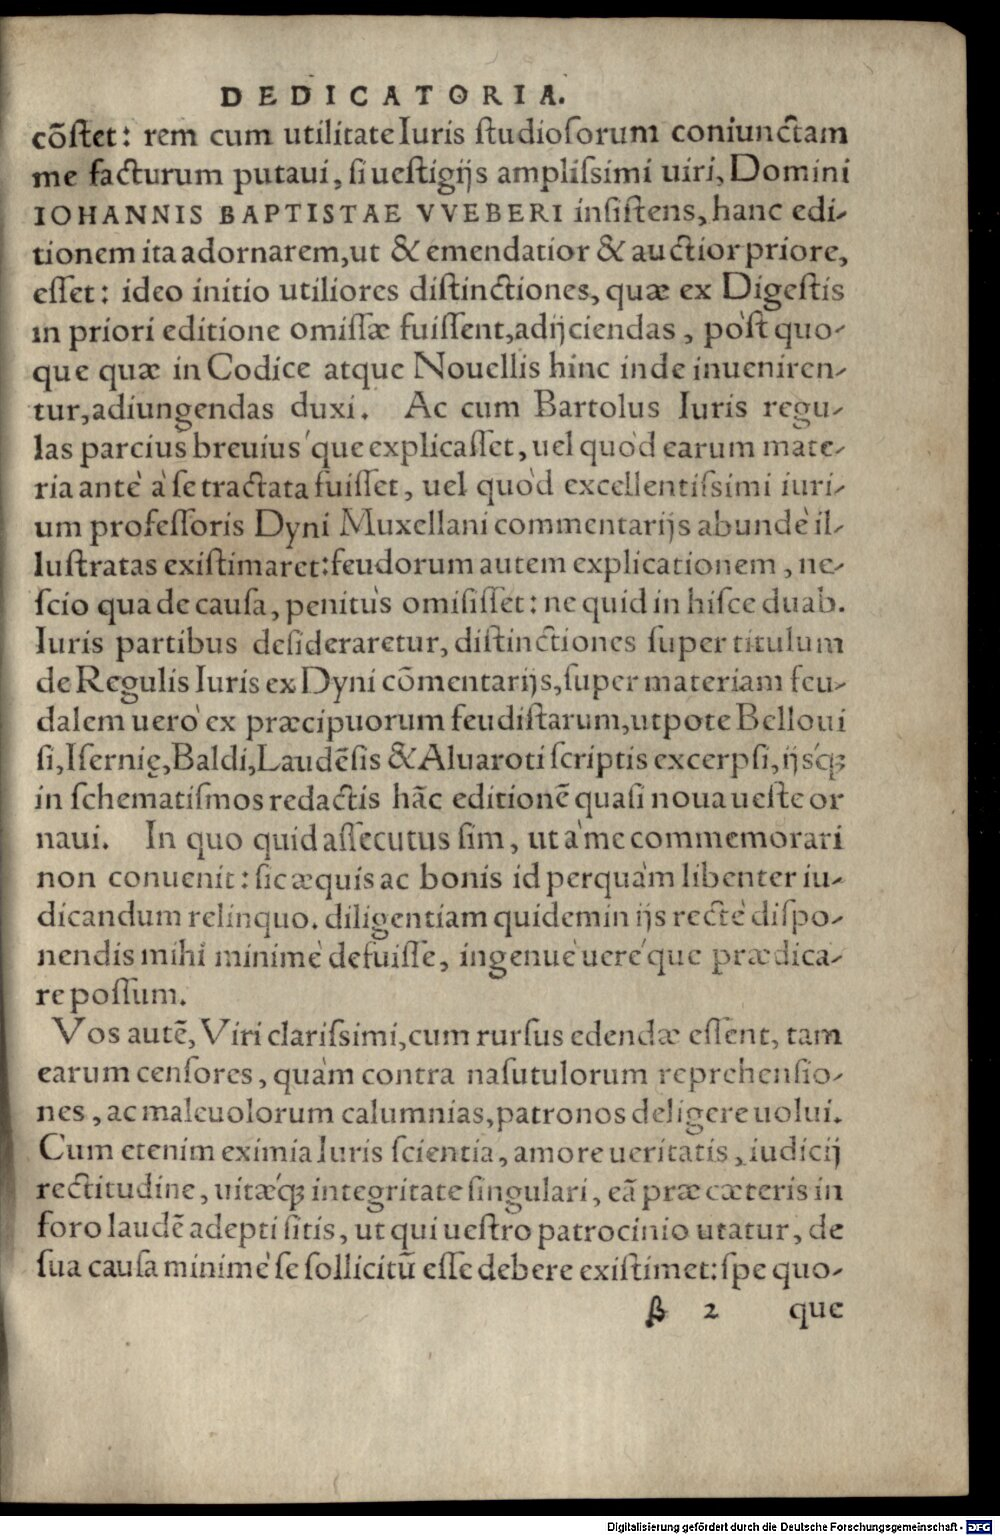 DEDICATORIA.
cõſtet: rem cum utilitate Iuris ſtudioſorum coniunctam
me facturum putaui, ſi ueſtigijs ampliſsimi uiri, Domini
IOHANNIS BAPTISTAE VVEBERI inſiſtens, hanc edi-
tionem ita adornarem, ut & emendatior & auctior priore,
eſſet: ideo initio utiliores diſtinctiones, quæ ex Digeſtis
in priori editione omiſſæ fuiſſent, adijciendas, pòſt quo-
que quæ in Codice atque Nouellis hinc inde inueniren-
tur, adiungendas duxi. Ac cum Bartolus Iuris regu-
las parcius breuius´que explicaſſet, uel quòd earum mate-
ria antè à ſe tractata fuiſſet, uel quòd excellentiſsimi iuri-
um profeſſoris Dyni Muxellani commentarijs abundè il-
luſtratas exiſtimaret: feudorum autem explicationem, ne-
ſcio qua de cauſa, penitùs omiſiſſet: ne quid in hiſce duab.
Iuris partibus deſideraretur, diſtinctiones ſuper titulum
de Regulis Iuris ex Dyni cõmentarijs, ſuper materiam feu-
dalem uerò ex præcipuorum feudiſtarum, utpote Belloui
ſi, Iſernię, Baldi, Laudẽſis & Aluaroti ſcriptis excerpſi, ijs´q́;
in ſchematiſmos redactis hãc editionẽ quaſi noua ueſte or
naui. In quo quid aſſecutus ſim, ut à me commemorari
non conuenit: ſic æquis ac bonis id perquàm libenter iu-
dicandum relinquo. diligentiam quidem in ijs rectè diſpo-
nendis mihi minimè defuiſſe, ingenuè uerè´que prædica-
re poſſum.
Vos autẽ, Viri clariſsimi, cum rurſus edendæ eſſent, tam
earum cenſores, quàm contra naſutulorum reprehenſio-
nes, ac maleuolorum calumnias, patronos deligere uolui.
Cum etenim eximia Iuris ſcientia, amore ueritatis, iudicij
rectitudine, uitæ´q́; integritate ſingulari, eã præ cæteris in
foro laudẽ adepti ſitis, ut qui ueſtro patrocinio utatur, de
ſua cauſa minimè ſe ſollicitũ eſſe debere exiſtimet: ſpe quo-
β 2 que
Digitalisierung gefördert durch die Deutsche Forschungsgemeinschaft - DFG